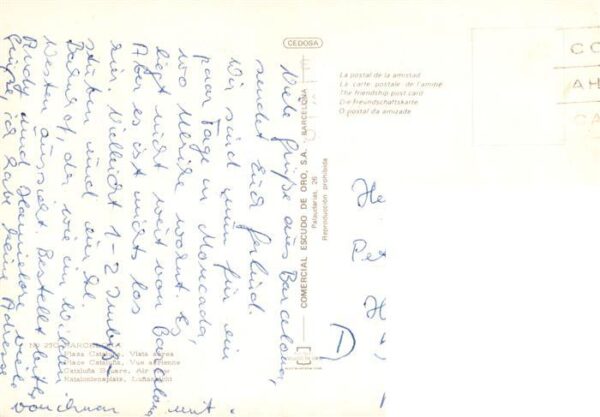 Viele Grüße aus Barcelona,
sendet Euch Gerlind.
Wir sind nun für ein
paar Tage in Moncada
wo Ulrike wohnt. Es
liegt nicht weit von Barcelona
Aber es ist nichts los
hier. Vielleicht 1-2
stuben und ein
Bahnhof, der wie im Wilden
Westen aussieht. Bestellt bitte
Andy und Hannelore viele
Grüße, ich habe keine Adresse
von ihnen mit.
CEDOSA
La postal de la amistad
La carte postale de l'amitié
The friendship post card
Die Freundschaftskarte
O postal da amizade
COMERCIAL ESCUDO DE ORO, S.A. - BARCELONA
Palaudarias, 26
Reproducción prohibida
BARCELONA
Plaza Cataluña, Vista aérea
Place Cataluña, Vue aérienne
Cataluña Square, Air view
Katalonienplatz, Luftansicht
He
Pet
H
D
CO
AH
CA